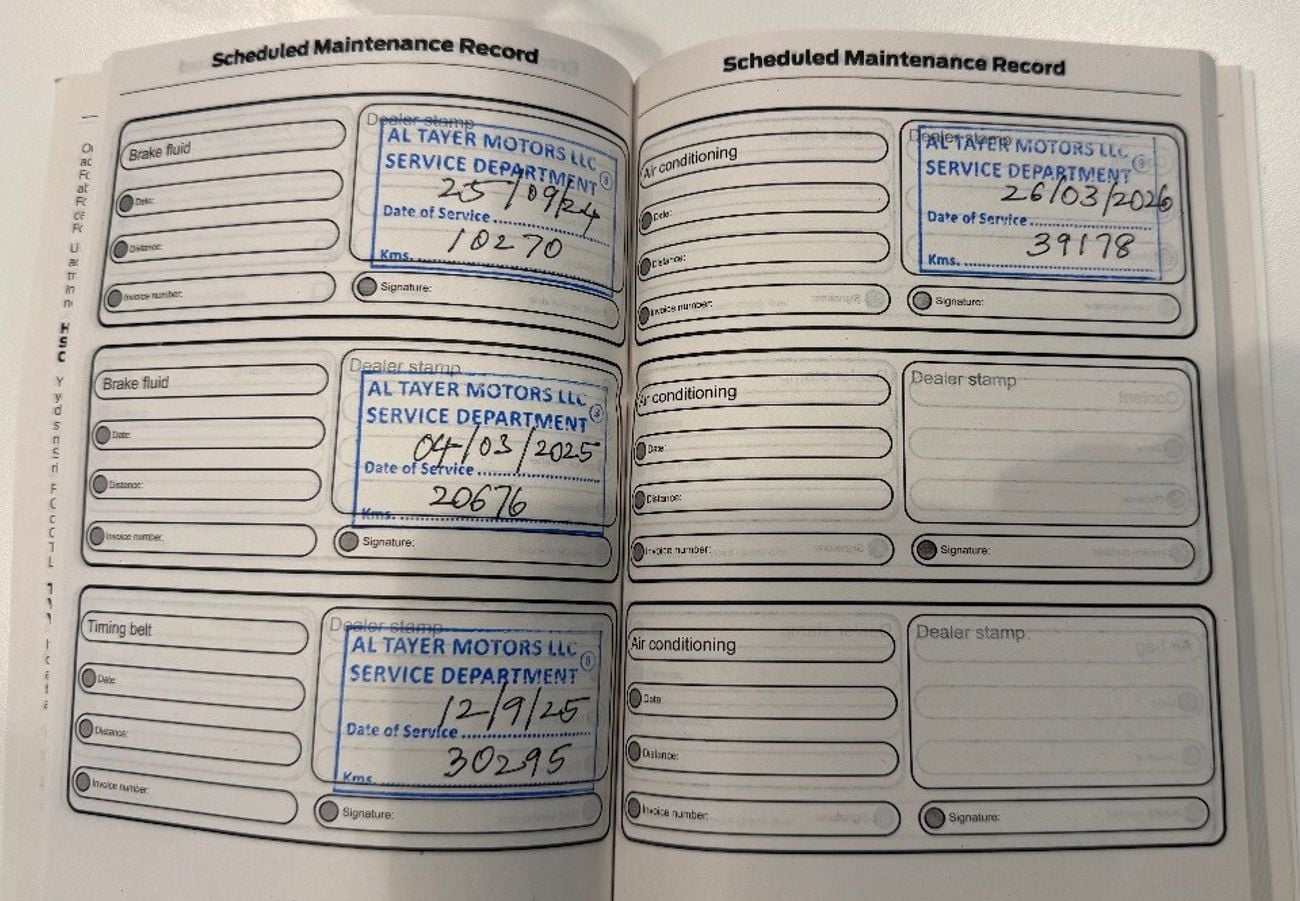 Scheduled Maintenance Record
Brake fluid
Date:
Distance:
Invoice number:
Dealer stamp
AL TAYER MOTORS LLC
SERVICE DEPARTMENT
25/09/24
Date of Service
10270
Kms.
Signature:
Brake fluid
Date:
Distance:
Invoice number:
Dealer stamp
AL TAYER MOTORS LLC
SERVICE DEPARTMENT
04/03/2025
Date of Service
20676
Kms.
Signature:
Timing belt
Date:
Distance:
Invoice number:
Dealer stamp
AL TAYER MOTORS LLC
SERVICE DEPARTMENT
12/9/25
Date of Service
30295
Kms.
Signature:
Scheduled Maintenance Record
Air conditioning
Date:
Distance:
Invoice number:
Dealer stamp
AL TAYER MOTORS LLC
SERVICE DEPARTMENT
26/03/2026
Date of Service
39178
Kms.
Signature:
Air conditioning
Date:
Distance:
Invoice number:
Dealer stamp
Signature:
Air conditioning
Date:
Distance:
Invoice number:
Dealer stamp
Signature: